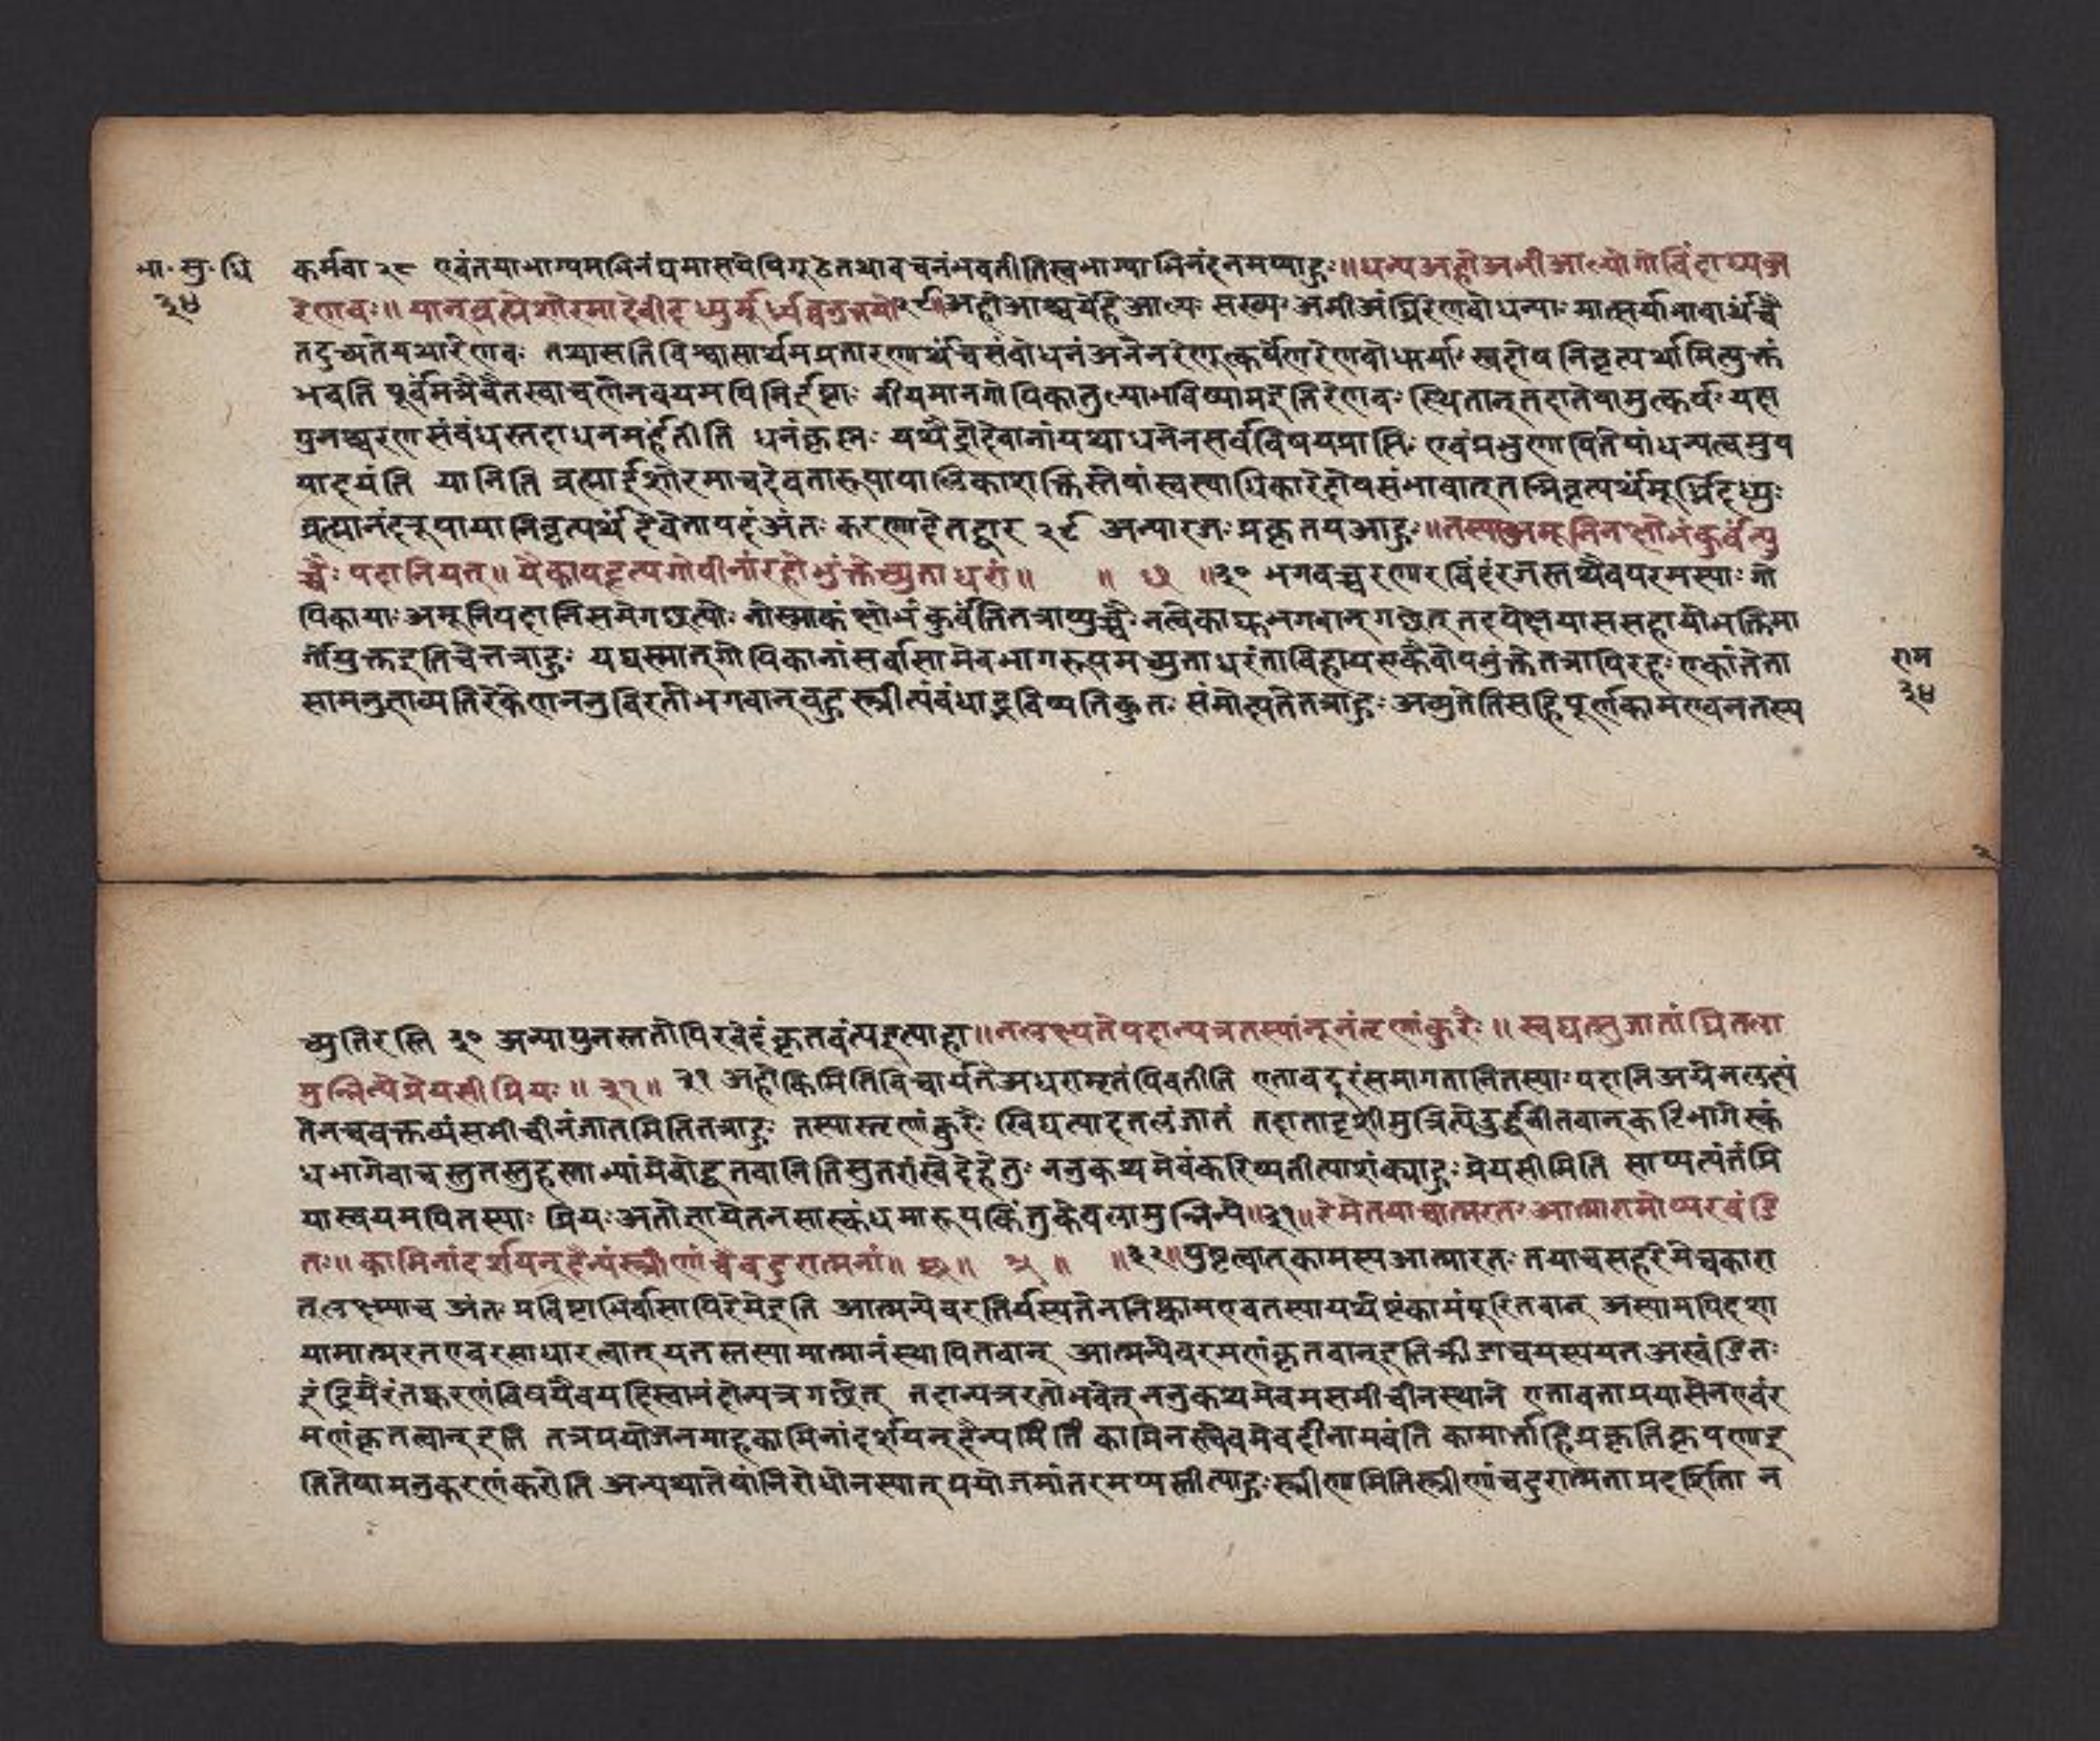 भा. सु. धि
३४
कर्मवा २८ एवंतयाभाग्यमभिनंद्यमासर्येपिगूढेतथावचनंभवतीतिस्वभाग्याभिनंदनमप्याहुः॥धन्यअहोअमीआल्योगोविंदाघ्र्यब्ज
रेणवः॥ यान्ब्रह्मेशोरमादेवीदध्युर्मूर्ध्न्यघनुत्तये२९॥अहोआश्चर्येहेआल्यः सख्यः अमीअंघ्रिरेणवोधन्याः मात्सर्याभावार्थंचै
तदुच्यतेयथारेणवः तथासतिविश्वासार्थमप्रतारणार्थंचसंबोधनंअनेनरेणूत्कर्षेणरेणवोधार्याः स्वदोषनिवृत्यर्थामित्युक्तं
भवति पूर्वमत्रैवैतस्याचलेनवयमपिनिर्दृष्टाः नीयमानगोपिकातुल्याभविष्यामइतिरेणवः स्थितान्तदातेषामुत्कर्षः यदा
पुनश्चरणसंबंधस्तदाधनमर्हतीति धनंकृत्स्नः यथेंद्रोदेवानांयथाधनेनसर्वविषयप्राप्तिः एवंप्रभुणापितेषांधन्यत्वमुप
पादयंति यानिति ब्रह्माईशोरमाचदेवतारूपापालिकाशक्तिस्तेषांस्वस्वाधिकारेदोषसंभावात्तन्निवृत्यर्थंमूर्ध्निदध्युः
ब्रह्मानंदनूपायानिवृत्यर्थंदेवेतापदंअंतः करणादेतद्वार २९ अन्यारजः प्रकृतयआहुः॥तस्याअमूनिनःक्षोभंकुर्वंत्यु
च्चैः पदानियत्॥ यैकापहृत्यगोपीनांरहोभुंक्तेच्युताधरां॥ ॥ छ ॥३० भगवच्चरणारविंदंरजस्तथैवपरमस्याः गो
पिकायाः अमूनिपदानिसमेगछत्योः नोस्माकंक्षोभंकुर्वंतितत्राप्युच्चैः नत्वेकाघ्रभगवान्गछेत् तदपेक्षयाससहायोभक्तिमा
र्गोयुक्तइतिचेत्तत्राहुः यद्यस्मात्गोपिकानांसर्वासामेवभागरूपमच्युताधरंताविहायसकैवोपभुंक्तेतत्रापिरहः एकांतेता
राम
३४
सामनुज्ञाव्यतिरेकेणाननुविरतोभगवान्बहुस्त्रीत्संबंधाद्भविष्यतिकुतः संभोत्स्यतेतत्राहुः अच्युतेतिसहिपूर्णकामएवनतस्य
च्युतिरस्ति ३० अन्यापुनस्ततोपिरवेदंकृतवंत्यइत्याहा॥नलक्ष्यतेपदान्यत्रतस्यांनूनंतृणांकुरैः॥ स्वद्यत्सुजातांघ्रितला
मुन्निन्येप्रेयसीप्रियः॥ ३१॥ ३१ अहोकिमितिविचार्यतेअधरामृतंपिबतीति एतावदूरंसमागतानितस्याः पदानिअग्रेनलक्ष्यं
तेनचवक्तव्यंसमीचीनंजातमितितत्राहुः तस्यास्तृणांकुरैः खिद्यत्पादतलंजातं तदातादृशीमुन्नित्येदुर्द्ध्वनीतवान्कटिभागेस्कं
धभागेवाचस्तुतस्तुहस्ताभ्यांमेवोद्धृतवानितिसुतरांखेदेहेतुः ननुकथमेवंकरिष्यतीत्याशंक्याहुः प्रेयसीमिति साप्यत्यंतंप्रि
यास्वयमपितस्याः प्रियः अतोलाघेतनसास्कंधमारूपकिंतुकेवलामुन्निन्ये॥३१॥रेमेतयाचात्मरतः आत्मारामोप्यरवंडि
तः॥ कामिनांदर्शयन्दैन्यंस्त्रीणांचैवदुरात्मनां॥ छ॥ ॥ ॥३२॥पुष्टत्वात्कामस्यआत्मारतः तयाचसहरेमेचकारा
तलक्ष्म्याच अंतः प्रविष्टाभिर्वासापिरेमेइति आत्मन्येवरतिर्यस्यतेननिष्कामएवतस्यायथेष्टंकामंपूरितवान् अस्यामपिदशा
यामात्मरतएवरसाधारत्वात्यतस्तस्यामात्मानंस्थापितवान् आत्मन्येवरमणंकृतवान्इतिक्रीडाचयस्ययतअखंडितः
इंद्रियैरंतष्करणंविषयैवयदिस्वानंदोन्यत्रगछेत् तदान्यत्ररतोभवेत्ननुकथमेवमसमीचीनस्थाने एतावताप्रयासेनएवंर
मणंकृतत्वान्इति तत्रप्रयोजनमाहकामिनांदर्शयन्दैन्यमिति कामिनस्त्वेवमेवदीनाभवंति कामार्त्ताहिप्रकृतिकृपणाइ
तितेषामनुकरणंकरोति अन्यथातेषांनिरोधोनस्यात् प्रयोजमांतरमप्यस्तीत्याहुः स्त्रीणामितिस्त्रीणांचदुरात्मताप्रदर्शिता न